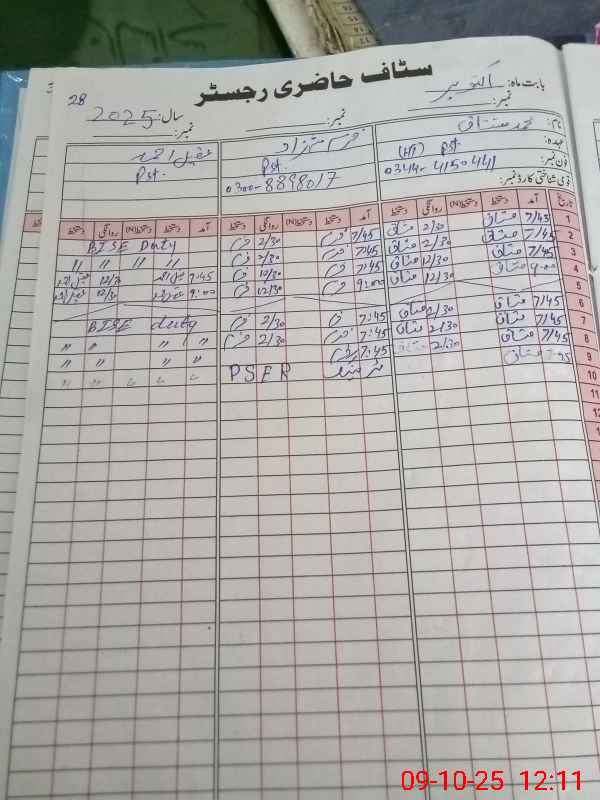 28
سٹاف حاضری رجسٹر
بابت ماہ: اکتوبر
سال: 2025
نمبر:
نمبر:
نمبر:
نام: محمد مشتاق
عہدہ: (HT) Pst.
فون نمبر: 0344-4150441
قومی شناختی کارڈ نمبر:
Pst.
0300-8898017
Pst.
تاریخ آمد دستخط دستخط(N) روانگی دستخط آمد دستخط دستخط(N) روانگی دستخط آمد دستخط دستخط(N) روانگی دستخط
1 7/45 مشتاق 2/30 مشتاق 7/45 2/30 BISE Duty
2 7/45 مشتاق 2/30 مشتاق 7/45 2/30 " " " "
3 7/45 مشتاق 12/30 مشتاق 7/45 12/30 7:45 12/30
4 9:00 مشتاق 12/30 مشتاق 9:00 12/30 9:00 12/30
5
6 7/45 مشتاق 2/30 مشتاق 7:45 2/30 BISE duty
7 7/45 مشتاق 2/30 مشتاق 7:45 2/30 " " " "
8 7/45 مشتاق 2/30 مشتاق 7:45 " " " "
9 7:45 مشتاق PSER " " " " "
10
11
12
09-10-25 12:11